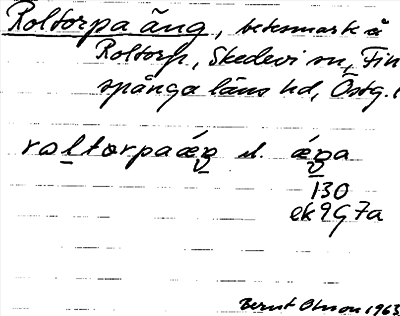 Roltorpa äng, betesmark å
Roltorp, Skedevi sn, Fin
spånga läns hd, Östg.
rωltorpaǽg el. ǽga
130
ek 9G 7a
Bernt Olsson 1963